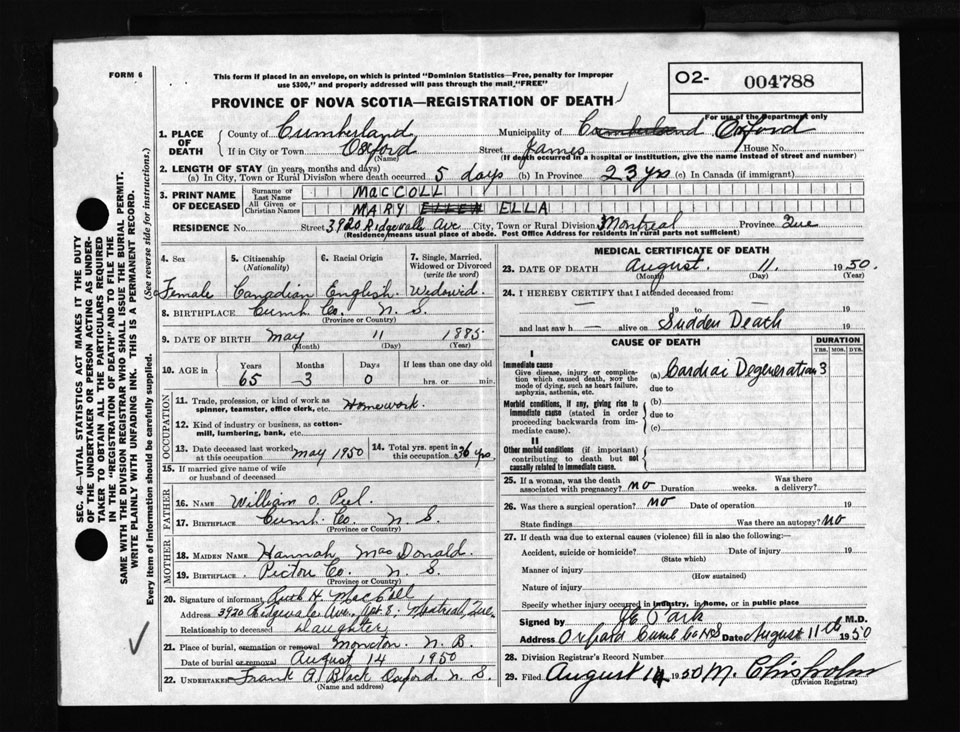 FORM 6
This form if placed in an envelope, on which is printed "Dominion Statistics—Free, penalty for improper
use $300," and properly addressed will pass through the mail, "FREE"
PROVINCE OF NOVA SCOTIA—REGISTRATION OF DEATH
O2- 004788
For use of the Department only
1. PLACE OF DEATH
County of Cumberland Municipality of Cumberland Oxford
If in City or Town Oxford Street James House No.
(Name) (If death occurred in a hospital or institution, give the name instead of street and number)
2. LENGTH OF STAY (in years, months and days)
(a) In City, Town or Rural Division where death occurred 5 days (b) In Province 23 yrs (c) In Canada (if immigrant)
3. PRINT NAME OF DECEASED
Surname or Last Name MACCOLL
All Given or Christian Names MARY ELLEN ELLA
RESIDENCE No. Street 3920 Ridgevale Ave City, Town or Rural Division Montreal Province Que
(Residence means usual place of abode. Post Office Address for residents in rural parts not sufficient)
4. Sex
Female
5. Citizenship (Nationality)
Canadian
6. Racial Origin
English
7. Single, Married, Widowed or Divorced (write the word)
Widowed.
8. BIRTHPLACE Cumb. Co. N. S.
(Province or Country)
9. DATE OF BIRTH May 11 1885
(Month) (Day) (Year)
10. AGE in Years Months Days If less than one day old
65 3 0 hrs. or min.
OCCUPATION
11. Trade, profession, or kind of work as spinner, teamster, office clerk, etc. Homework.
12. Kind of industry or business, as cotton-mill, lumbering, bank, etc.
13. Date deceased last worked at this occupation May 1950
14. Total yrs. spent in this occupation 36 yrs.
15. If married give name of wife or husband of deceased
FATHER
16. NAME William O. Peel.
17. BIRTHPLACE Cumb. Co. N. S.
(Province or Country)
MOTHER
18. MAIDEN NAME Hannah MacDonald.
19. BIRTHPLACE Pictou Co. N. S.
(Province or Country)
20. Signature of informant Ruth H. MacColl
Address 3920 Ridgevale Ave. Apt. 8, Montreal, Que.
Relationship to deceased Daughter
21. Place of burial, cremation or removal Moncton N. B.
Date of burial or removal August 14 1950
22. UNDERTAKER Frank A. Black Oxford. N. S.
(Name and address)
MEDICAL CERTIFICATE OF DEATH
23. DATE OF DEATH August. 11. 1950.
(Month) (Day) (Year)
24. I HEREBY CERTIFY that I attended deceased from:
— 19 to — 19
and last saw h — alive on Sudden Death 19
CAUSE OF DEATH
DURATION
YRS. MOS. DYS.
I
Immediate cause
Give disease, injury or complication which caused death, NOT the mode of dying, such as heart failure, asphyxia, asthenia, etc.
(a) Cardiac Degeneration 3
due to
Morbid conditions, if any, giving rise to immediate cause (stated in order proceeding backwards from immediate cause).
(b)
due to
(c)
II
Other morbid conditions (if important) contributing to death but not causally related to immediate cause.
25. If a woman, was the death associated with pregnancy? No Duration weeks. Was there a delivery?
26. Was there a surgical operation? No Date of operation 19
State findings Was there an autopsy? No
27. If death was due to external causes (violence) fill in also the following:
Accident, suicide or homicide? Date of injury 19
(State which)
Manner of injury
(How sustained)
Nature of injury
Specify whether injury occurred in industry, in home, or in public place
Signed by Park M.D.
Address Oxford Cumb Co NS Date August 11th 1950
28. Division Registrar's Record Number
29. Filed August 14 1950 M. Chisholm
(Division Registrar)
SEC. 46—VITAL STATISTICS ACT MAKES IT THE DUTY
OF THE UNDERTAKER OR PERSON ACTING AS UNDER-
TAKER TO OBTAIN ALL THE PARTICULARS REQUIRED
IN THE "REGISTRATION OF DEATH" AND TO FILE THE
SAME WITH THE DIVISION REGISTRAR WHO SHALL ISSUE THE BURIAL PERMIT.
WRITE PLAINLY WITH UNFADING INK. THIS IS A PERMANENT RECORD.
Every item of information should be carefully supplied. (See reverse side for instructions.)